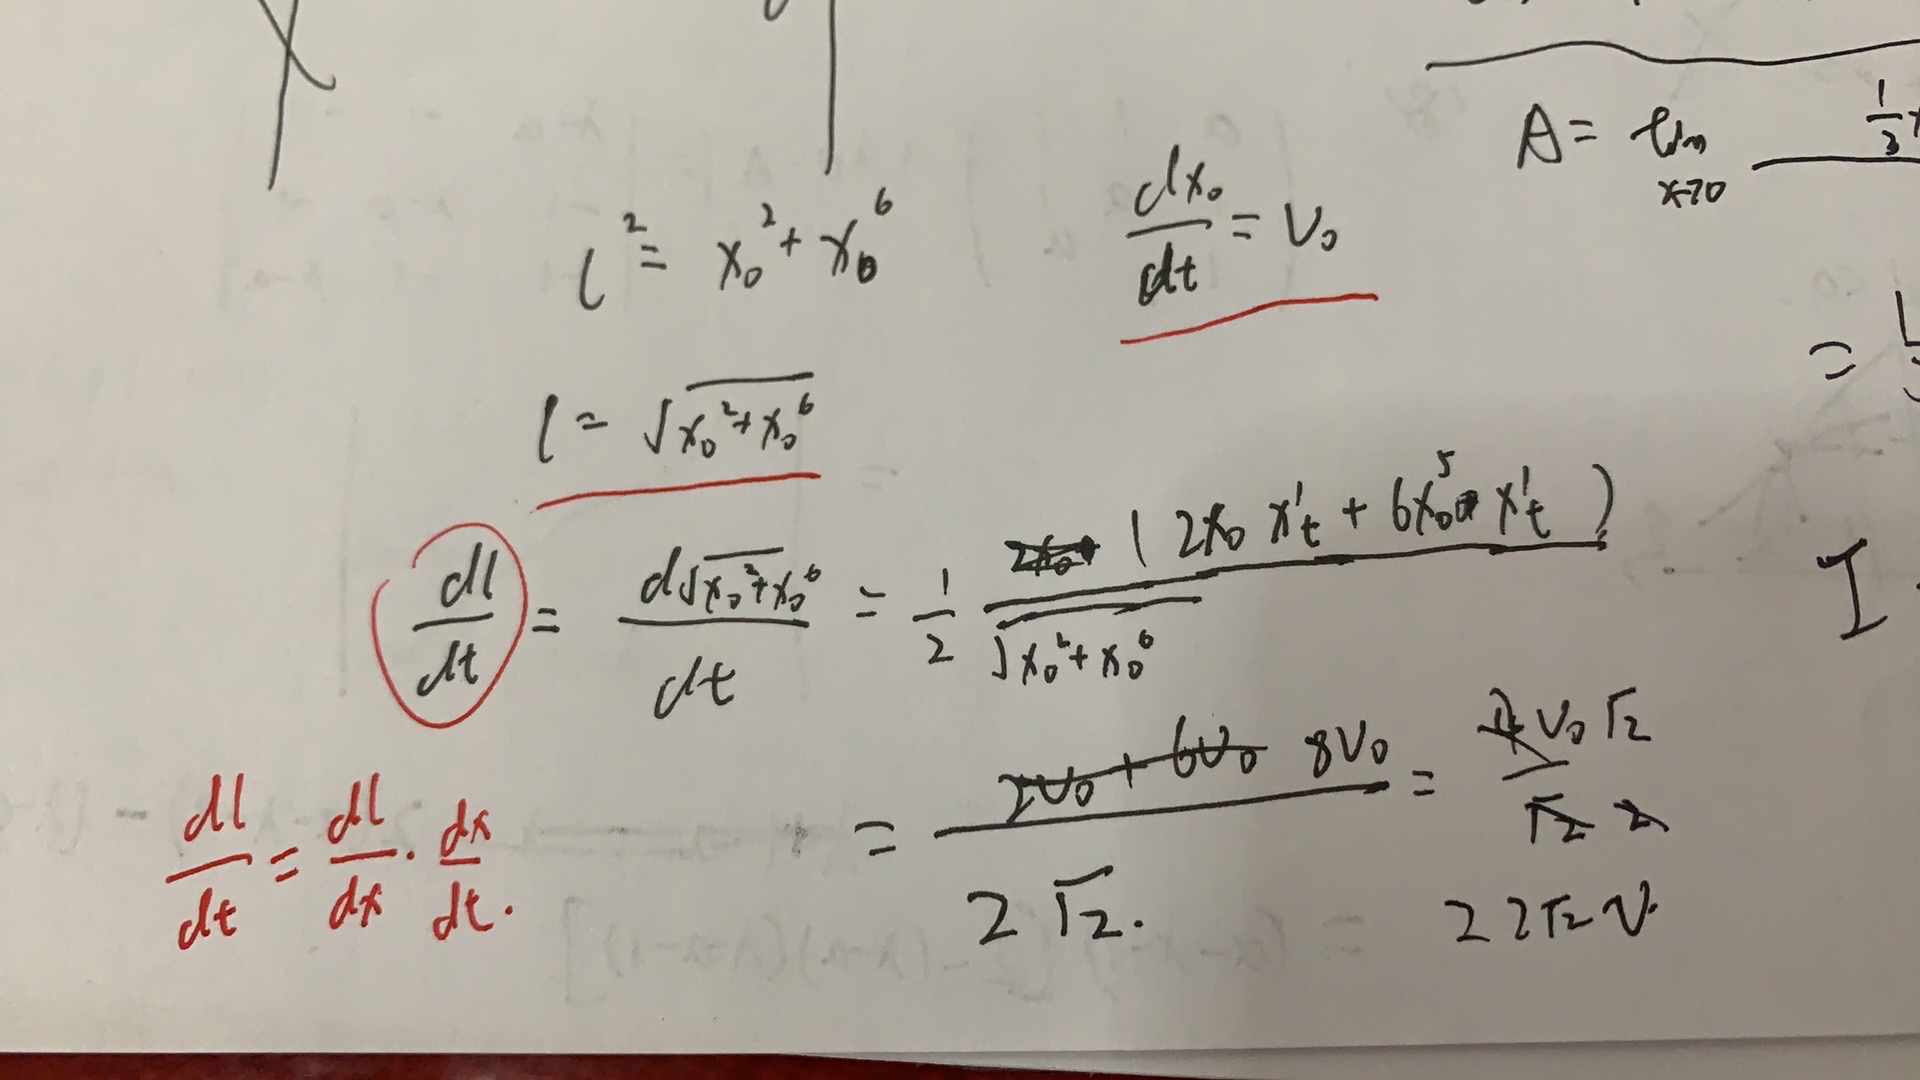 A = lim x→0 1/3
l² = x₀² + x₀⁶
dx₀/dt = v₀
=
l = √(x₀² + x₀⁶)
dl/dt = d√(x₀² + x₀⁶)/dt = 1/2 (2x₀ x't + 6x₀⁵ x't)/√(x₀² + x₀⁶)
I
= 2v₀ + 6v₀ 8v₀ / 2√2. = 4v₀√2 / √2 2
dl/dt = dl/dx · dx/dt.
2 2√2 v.